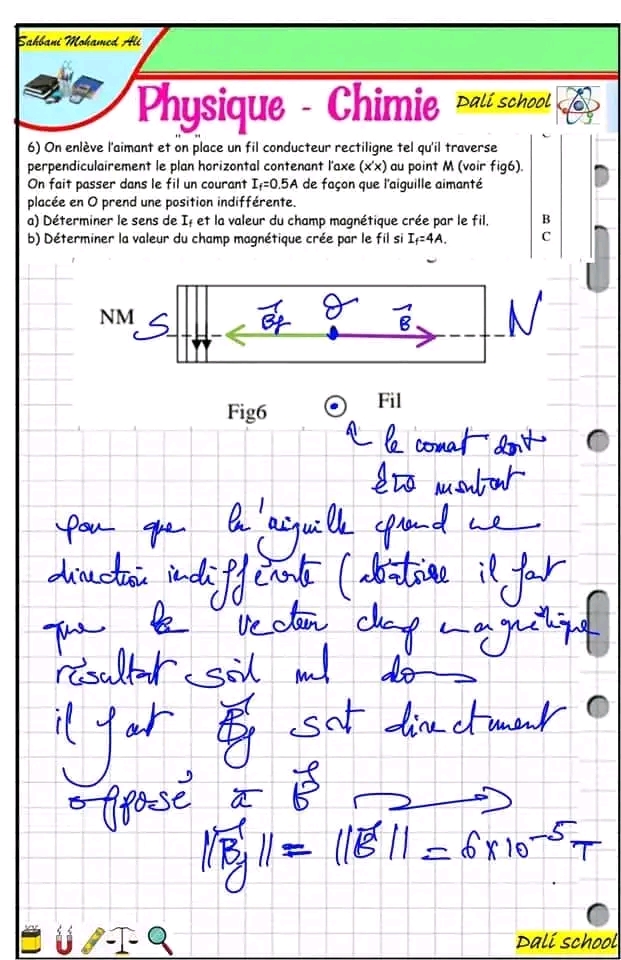 Sahbani Mohamed Ali
Physique - Chimie
Dali school
6) On enlève l'aimant et on place un fil conducteur rectiligne tel qu'il traverse
perpendiculairement le plan horizontal contenant l'axe (x'x) au point M (voir fig6).
On fait passer dans le fil un courant If=0.5A de façon que l'aiguille aimanté
placée en O prend une position indifférente.
a) Déterminer le sens de If et la valeur du champ magnétique crée par le fil.
B
b) Déterminer la valeur du champ magnétique crée par le fil si If=4A.
C
NM S Bf O B N
Fig6 Fil
le doit
être montant
pour que l'aiguille prend une
direction indifférente ( il faut
que le vecteur champ magnétique
résultant soit nul donc
il faut Bf soit directement
opposé à B
||Bf|| = ||B|| = 6 x 10⁻⁵ T
Dali school